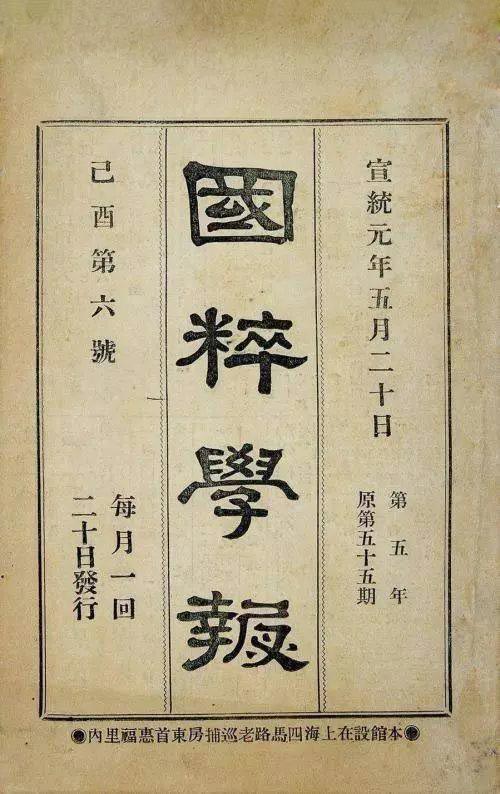 宣統元年五月二十日
第五年
原第五十五期
國粹學報
己酉第六號
每月一回
二十日發行
●本館設在上海四馬路老巡捕房東首惠福里內●